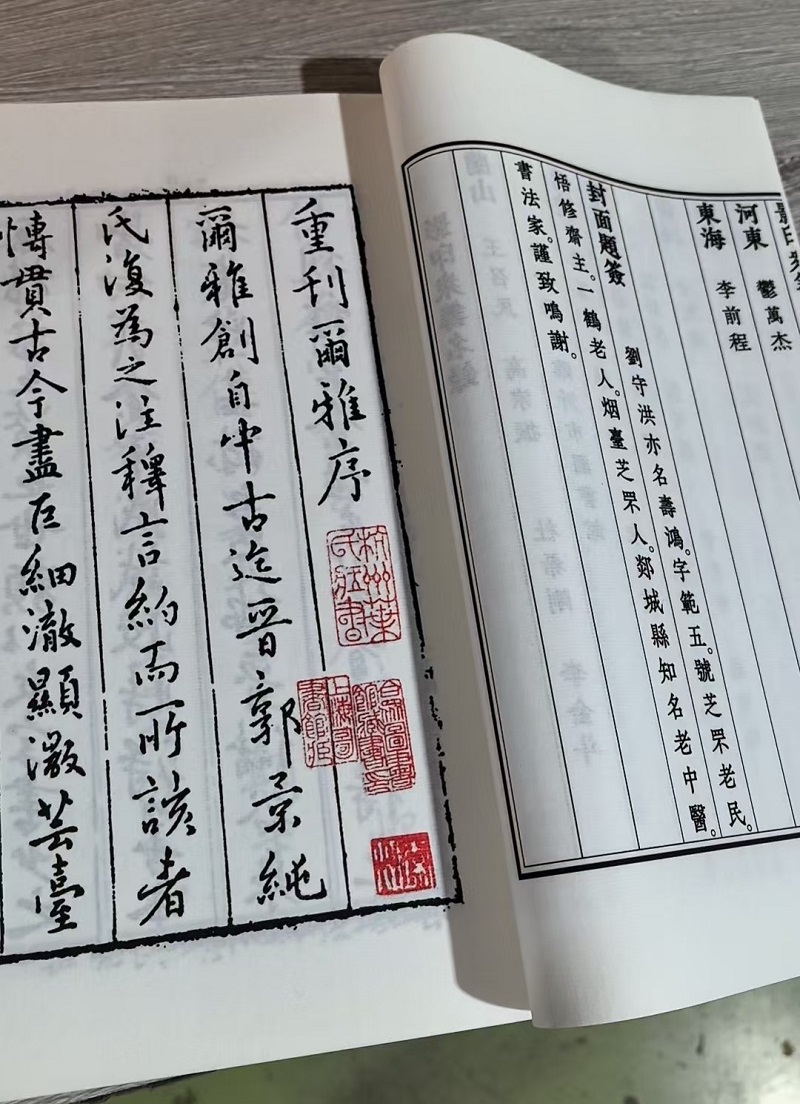 河東　鬱萬杰
東海　李前程
封面題簽
劉守洪亦名壽鴻。字範五。號芝罘老民。
悟修齋主。一鶴老人。烟臺芝罘人。郯城縣知名老中醫。
書法家。謹致鳴謝。
重刊爾雅序
杭州葉氏藏書
爾雅創自中古迄晉郭景純
氏復為之注釋言約而所該者
博貫古今盡巨細澈顯微芸臺